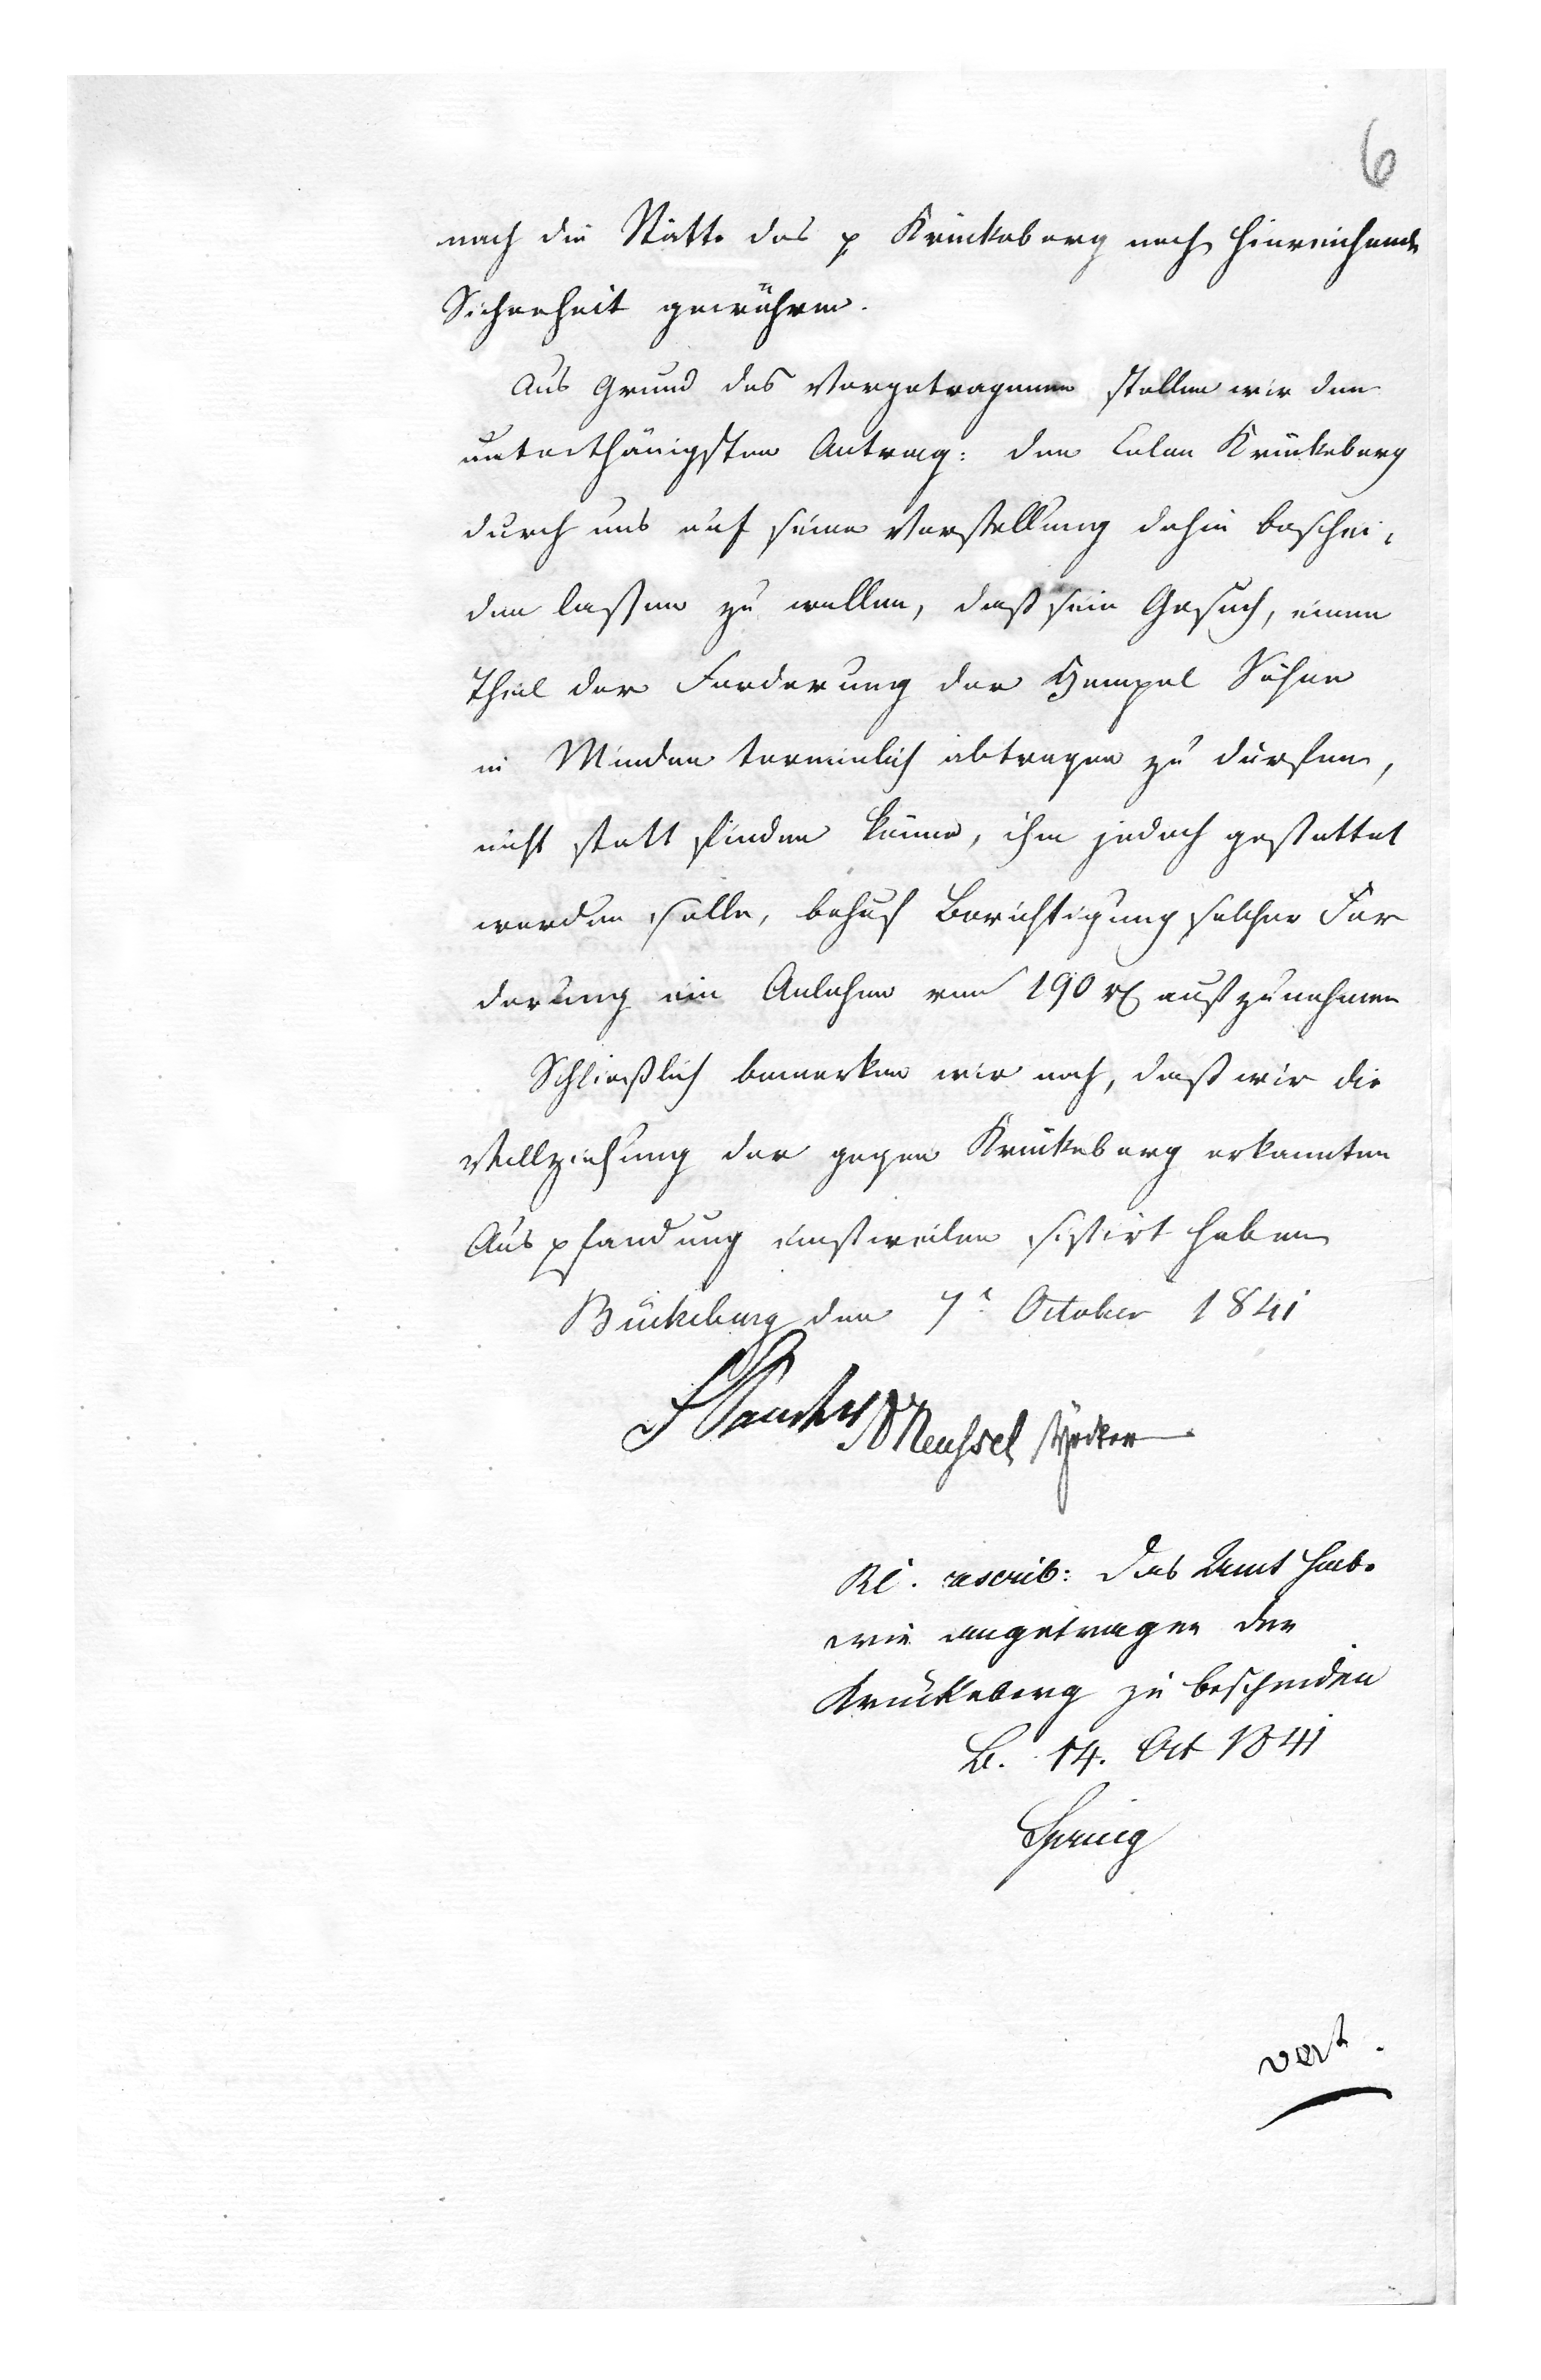 6
nach die Stätte des p Krückeberg noch hinreichende
Sicherheit gewähren.
Aus Grund des Vorgetragenen stellen wir den
unterthänigsten Antrag: den Colon Krückeberg
durch uns auf seine Vorstellung dahin beschei-
den lassen zu wollen, daß sein Gesuch, einen
Theil der Forderung der Hempel Söhne
in Minden terminlich abtragen zu dürfen,
nicht statt finden könne, ihm jedoch gestattet
werden solle, behuf Berichtigung solcher For
derung ein Anlehen von 190 rt aufzunehmen
Schließlich bemerken wir noch, daß wir die
Vollziehung der gegen Krückeberg erkannten
Auspfandung einstweilen sistirt haben
Bückeburg den 7t October 1841
Meussel
rescrib: das Amt habe
wie angetragen den
Krückeberg zu bescheiden
B. 14. Oct 1841
Spring
vert.